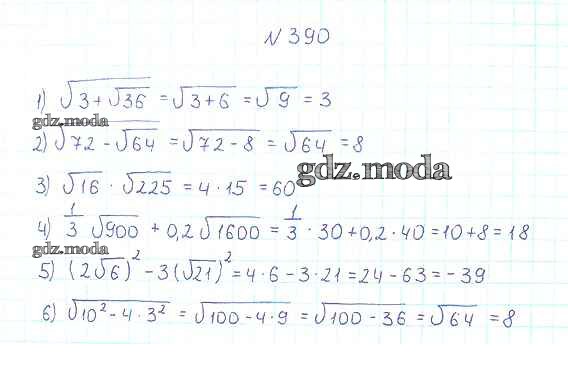 N 390
1) √(3 + √36) = √(3 + 6) = √9 = 3
gdz.moda
2) √(72 - √64) = √(72 - 8) = √64 = 8
gdz.moda
3) √16 · √225 = 4 · 15 = 60
4) 1/3 √900 + 0,2 √1600 = 1/3 · 30 + 0,2 · 40 = 10 + 8 = 18
gdz.moda
5) (2√6)² - 3(√21)² = 4 · 6 - 3 · 21 = 24 - 63 = - 39
6) √(10² - 4 · 3²) = √(100 - 4 · 9) = √(100 - 36) = √64 = 8